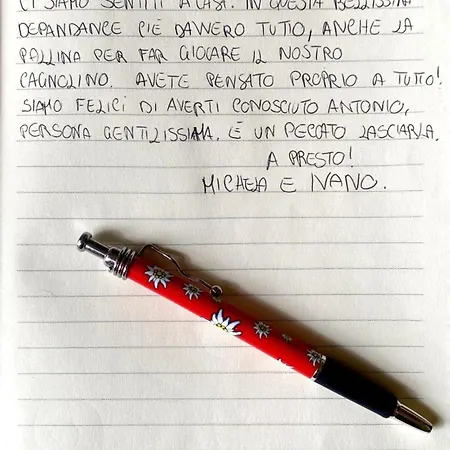 CI SIAMO SENTITI A CASA. IN QUESTA BELLISSIMA
DEPANDANCE C'È DAVVERO TUTTO, ANCHE LA
PALLINA PER FAR GIOCARE IL NOSTRO
CAGNOLINO. AVETE PENSATO PROPRIO A TUTTO!
SIAMO FELICI DI AVERTI CONOSCIUTO ANTONIO,
PERSONA GENTILISSIMA. È UN PECCATO LASCIARLA.
A PRESTO!
MICHELA E IVANO.